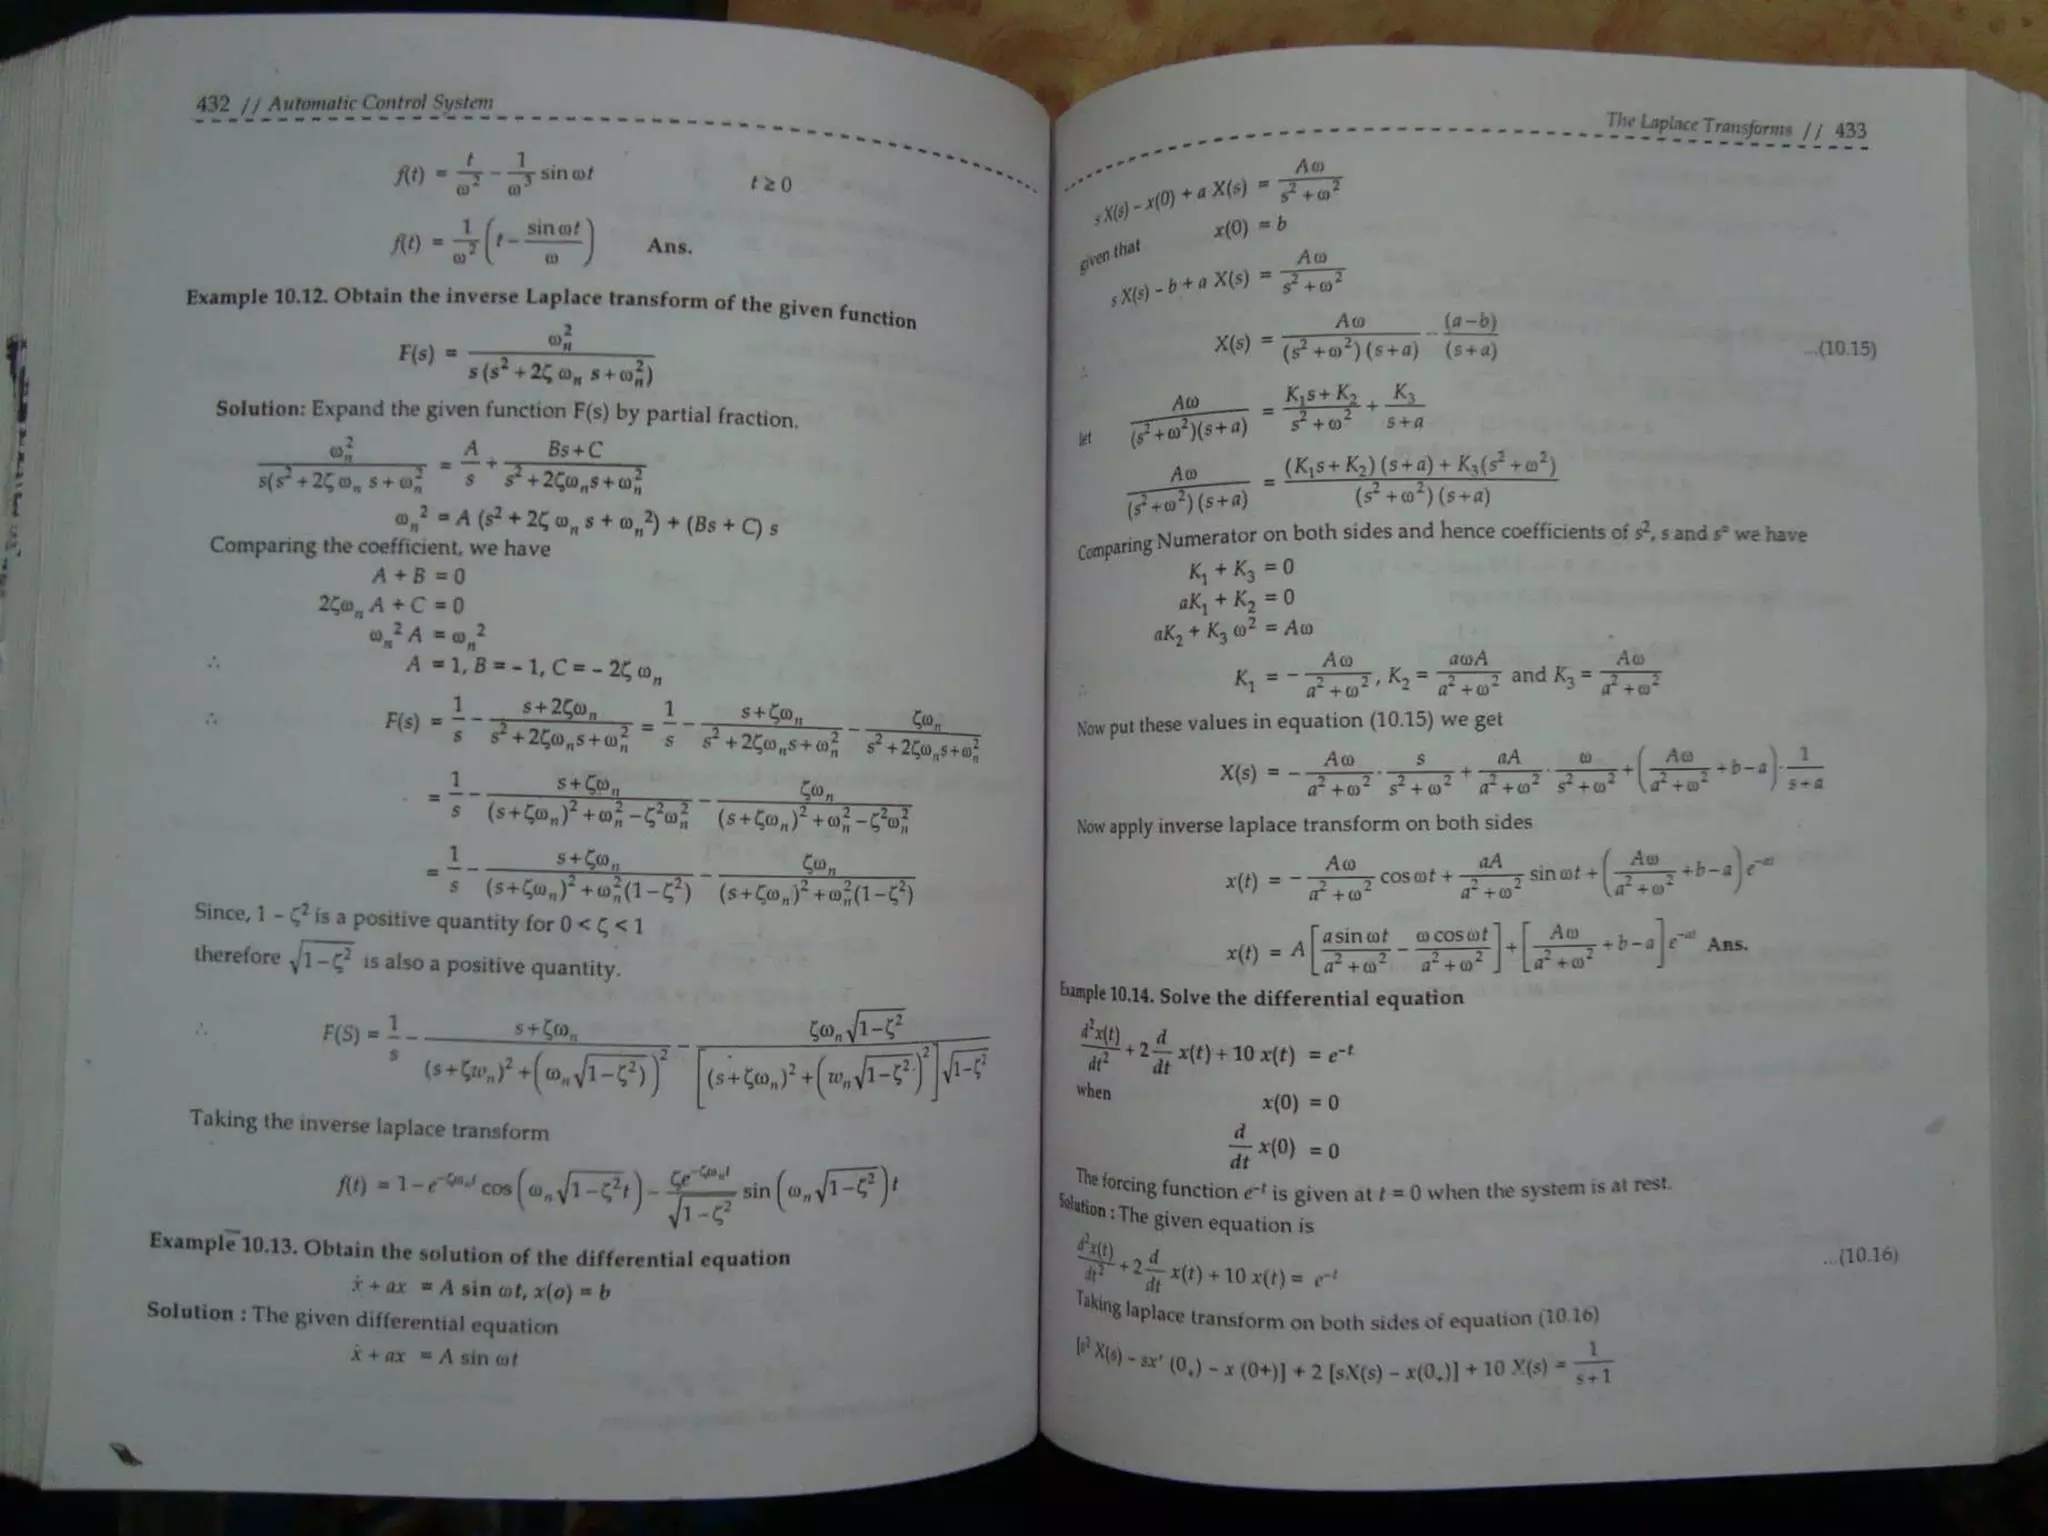 432 // Automatic Control System
f(t) = t/ω² − 1/ω³ sin ωt      t ≥ 0
f(t) = 1/ω² (t − sin ωt/ω)   Ans.
Example 10.12. Obtain the inverse Laplace transform of the given function
F(s) = ωₙ²/(s (s² + 2ζ ωₙ s + ωₙ²))
Solution: Expand the given function F(s) by partial fraction.
ωₙ²/(s(s² + 2ζ ωₙ s + ωₙ² = A/s + (Bs + C)/(s² + 2ζωₙs + ωₙ²)
ωₙ² = A (s² + 2ζ ωₙ s + ωₙ²) + (Bs + C) s
Comparing the coefficient, we have
A + B = 0
2ζωₙ A + C = 0
ωₙ² A = ωₙ²
∴ A = 1, B = − 1, C = − 2ζ ωₙ
∴ F(s) = 1/s − (s + 2ζωₙ)/(s² + 2ζωₙs + ωₙ²) = 1/s − (s + ζωₙ)/(s² + 2ζωₙs + ωₙ²) − ζωₙ/(s² + 2ζωₙs + ωₙ²)
= 1/s − (s + ζωₙ)/((s + ζωₙ)² + ωₙ² − ζ²ωₙ²) − ζωₙ/((s + ζωₙ)² + ωₙ² − ζ²ωₙ²)
= 1/s − (s + ζωₙ)/((s + ζωₙ)² + ωₙ²(1 − ζ²)) − ζωₙ/((s + ζωₙ)² + ωₙ²(1 − ζ²))
Since, 1 − ζ² is a positive quantity for 0 < ζ < 1
therefore √(1 − ζ²) is also a positive quantity.
∴ F(S) = 1/s − (s + ζωₙ)/((s + ζwₙ)² + (ωₙ√(1 − ζ²))²) − ζωₙ√(1 − ζ²)/([(s + ζωₙ)² + (wₙ√(1 − ζ²))²]√(1 − ζ²))
Taking the inverse laplace transform
f(t) = 1 − e^(−ζωₙt) cos (ωₙ√(1 − ζ²) t) − ζe^(−ζωₙt)/√(1 − ζ²) sin (ωₙ√(1 − ζ²)) t
Example 10.13. Obtain the solution of the differential equation
ẋ + ax = A sin ωt, x(o) = b
Solution : The given differential equation
ẋ + ax = A sin ωt
The Laplace Transforms // 433
s X(s) − x(0) + a X(s) = Aω/(s² + ω²)
given that x(0) = b
s X(s) − b + a X(s) = Aω/(s² + ω²)
∴ X(s) = Aω/((s² + ω²) (s + a)) − (a − b)/(s + a) ...(10.15)
let Aω/((s² + ω²)(s + a)) = (K₁s + K₂)/(s² + ω²) + K₃/(s + a)
Aω/((s² + ω²) (s + a)) = ((K₁s + K₂) (s + a) + K₃(s² + ω²))/((s² + ω²) (s + a))
Comparing Numerator on both sides and hence coefficients of s², s and s° we have
K₁ + K₃ = 0
aK₁ + K₂ = 0
aK₂ + K₃ ω² = Aω
∴ K₁ = − Aω/(a² + ω²), K₂ = aωA/(a² + ω²) and K₃ = Aω/(a² + ω²)
Now put these values in equation (10.15) we get
X(s) = − Aω/(a² + ω²) · s/(s² + ω²) + aA/(a² + ω²) · ω/(s² + ω²) + (Aω/(a² + ω²) + b − a) · 1/(s + a)
Now apply inverse laplace transform on both sides
x(t) = − Aω/(a² + ω²) cos ωt + aA/(a² + ω²) sin ωt + (Aω/(a² + ω²) + b − a) e^(−at)
x(t) = A [a sin ωt/(a² + ω²) − ω cos ωt/(a² + ω²)] + [Aω/(a² + ω²) + b − a] e^(−at) Ans.
Example 10.14. Solve the differential equation
d²x(t)/dt² + 2 d/dt x(t) + 10 x(t) = e^(−t)
when x(0) = 0
d/dt x(0) = 0
The forcing function e^(−t) is given at t = 0 when the system is at rest.
Solution : The given equation is
d²x(t)/dt² + 2 d/dt x(t) + 10 x(t) = e^(−t) ...(10.16)
Taking laplace transform on both sides of equation (10.16)
[s² X(s) − sx′ (0₊) − x (0+)] + 2 [sX(s) − x(0₊)] + 10 X(s) = 1/(s + 1)